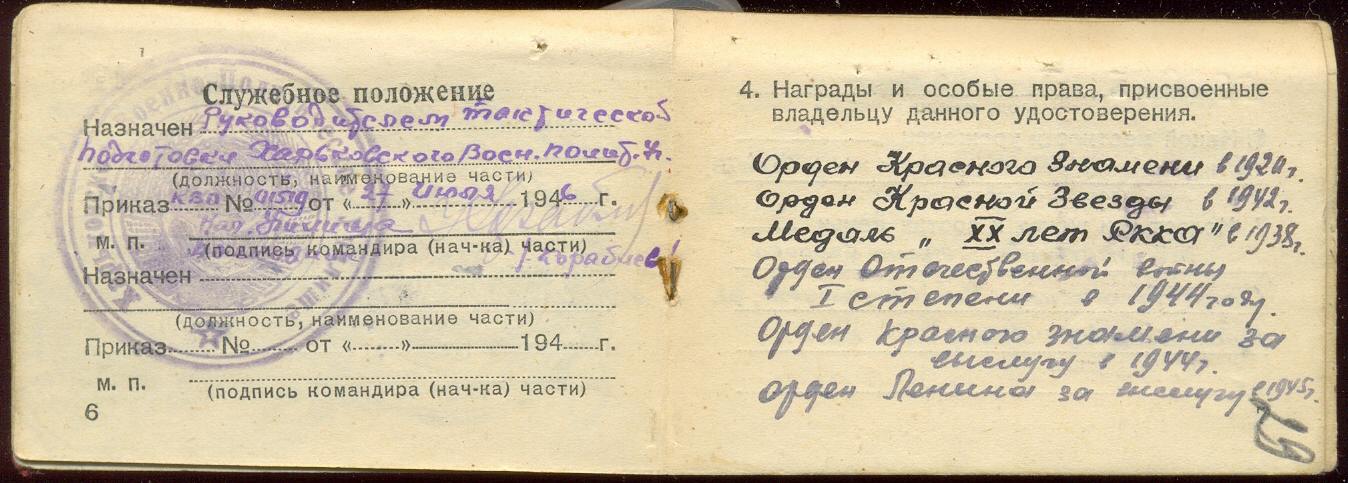 Служебное положение
Назначен Руководителем тактической
подготовки Харьковского Воен. полит. У.
(должность, наименование части)
Приказ КВО № 0159 от « 27 » июля 1946 г.
Нач. Училища
м. п. (подпись командира (нач-ка) части)
Назначен
(должность, наименование части)
Приказ № от « » 194 г.
м. п. (подпись командира (нач-ка) части)
6
4. Награды и особые права, присвоенные
владельцу данного удостоверения.
Орден Красного Знамени в 192 г.
Орден Красной Звезды в 1942 г.
Медаль „ XX лет Ркка" в 1938 г.
Орден Отечественной войны
I степени в 1944 году
Орден красного знамени за
выслугу в 1944 г.
орден Ленина за выслугу в 1945 г.